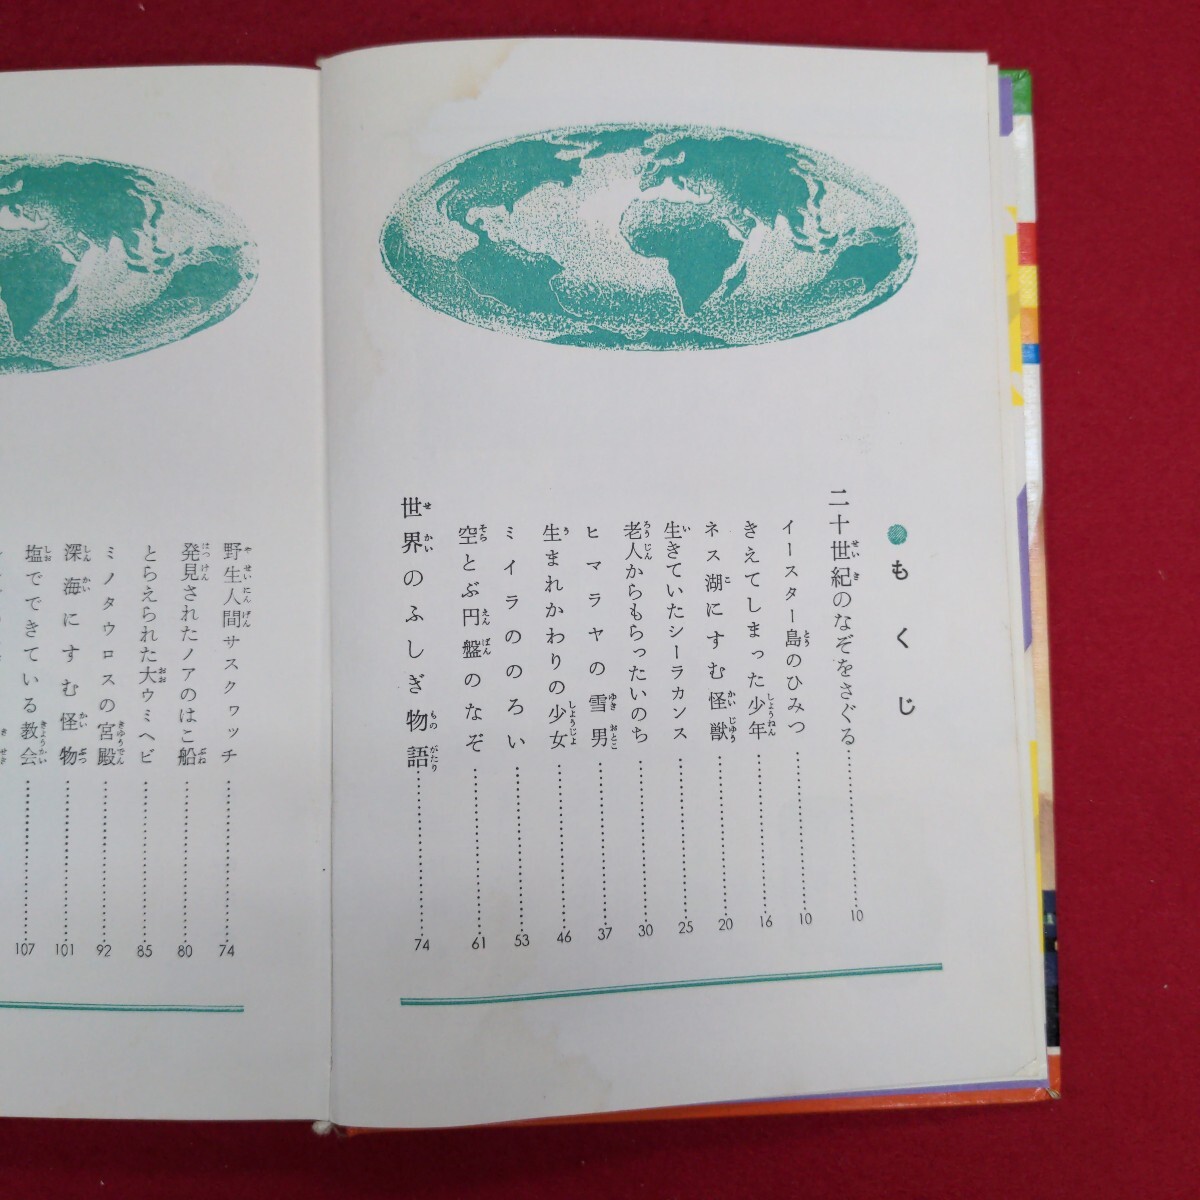 もくじ
二十世紀のなぞをさぐる……10
イースター島のひみつ……10
きえてしまった少年……16
ネス湖にすむ怪獣……20
生きていたシーラカンス……25
老人からもらったいのち……30
ヒマラヤの雪男……37
生まれかわりの少女……46
ミイラののろい……53
空とぶ円盤のなぞ……61
世界のふしぎ物語……74
野生人間サスクワッチ……74
発見されたノアのはこ船……80
とらえられた大ウミヘビ……85
ミノタウロスの宮殿……92
深海にすむ怪物……101
塩でできている教会……107